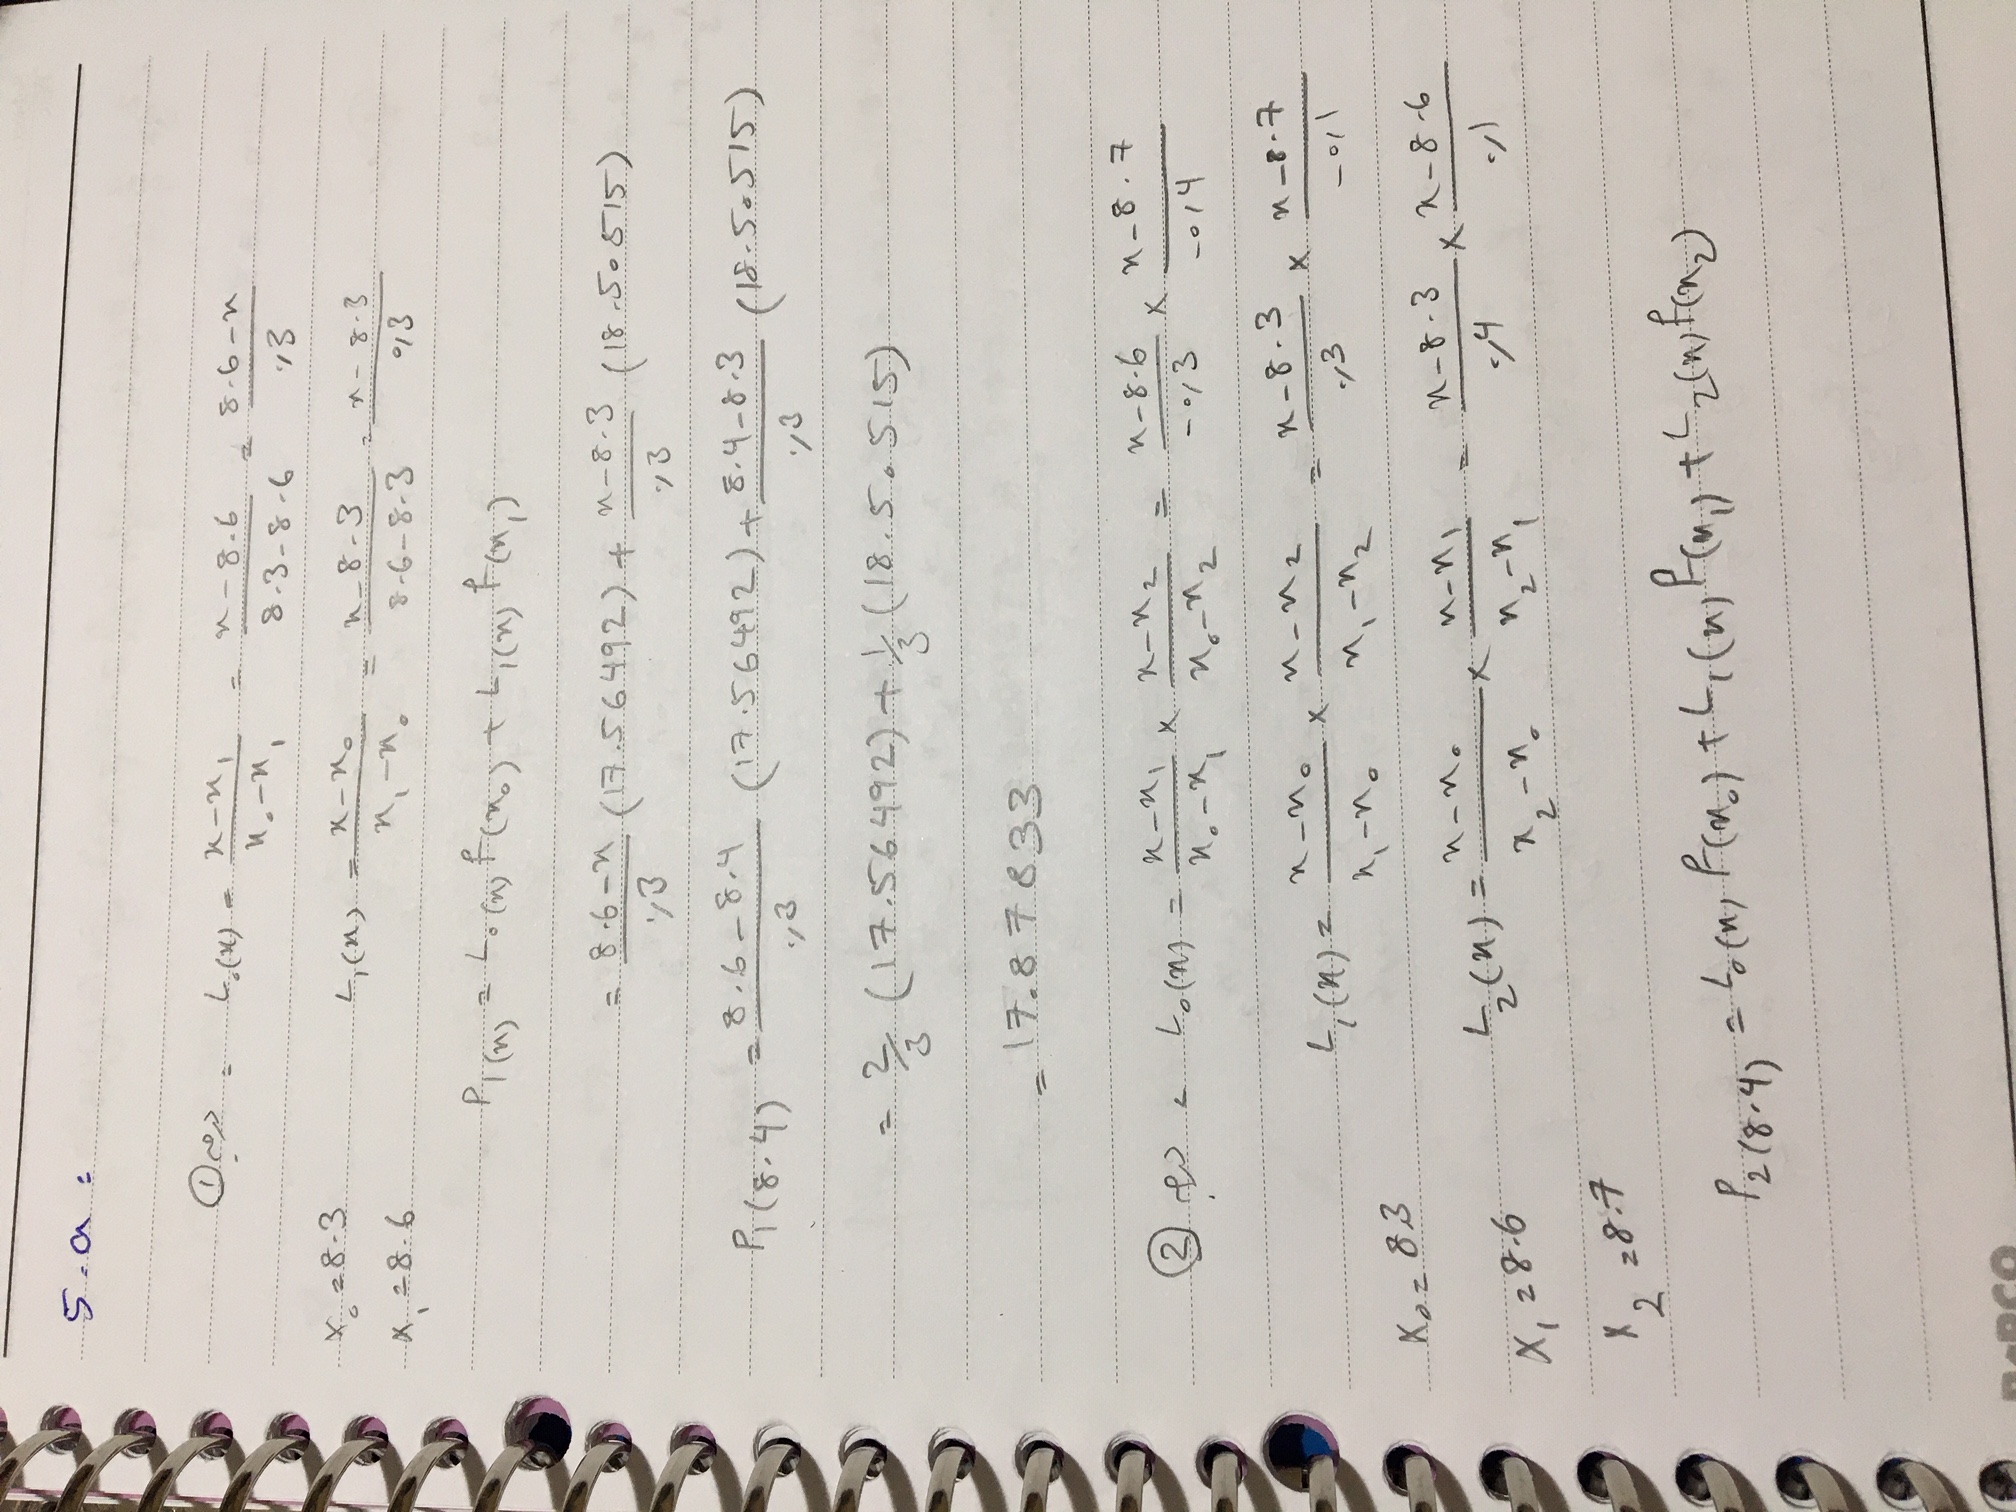 5.a:
درجه ① = L₀(x) = (x-x₁)/(x₀-x₁) = (x-8.6)/(8.3-8.6) = (8.6-x)/0,3
x₀=8.3
L₁(x) = (x-x₀)/(x₁-x₀) = (x-8.3)/(8.6-8.3) = (x-8.3)/0,3
x₁=8.6
P₁(x) = L₀(x) f(x₀) + L₁(x) f(x₁)
= (8.6-x)/0,3 (17.56492) + (x-8.3)/0,3 (18.50515)
P₁(8.4) = (8.6-8.4)/0,3 (17.56492) + (8.4-8.3)/0,3 (18.50515)
= 2/3 (17.56492) + 1/3 (18.50515)
= 17.87833
درجه ② = L₀(x) = (x-x₁)/(x₀-x₁) × (x-x₂)/(x₀-x₂) = (x-8.6)/-0,3 × (x-8.7)/-0,4
L₁(x) = (x-x₀)/(x₁-x₀) × (x-x₂)/(x₁-x₂) = (x-8.3)/0,3 × (x-8.7)/-0,1
x₀=8.3
L₂(x) = (x-x₀)/(x₂-x₀) × (x-x₁)/(x₂-x₁) = (x-8.3)/0,4 × (x-8.6)/0,1
x₁=8.6
x₂=8.7
P₂(8.4) = L₀(x) f(x₀) + L₁(x) f(x₁) + L₂(x) f(x₂)